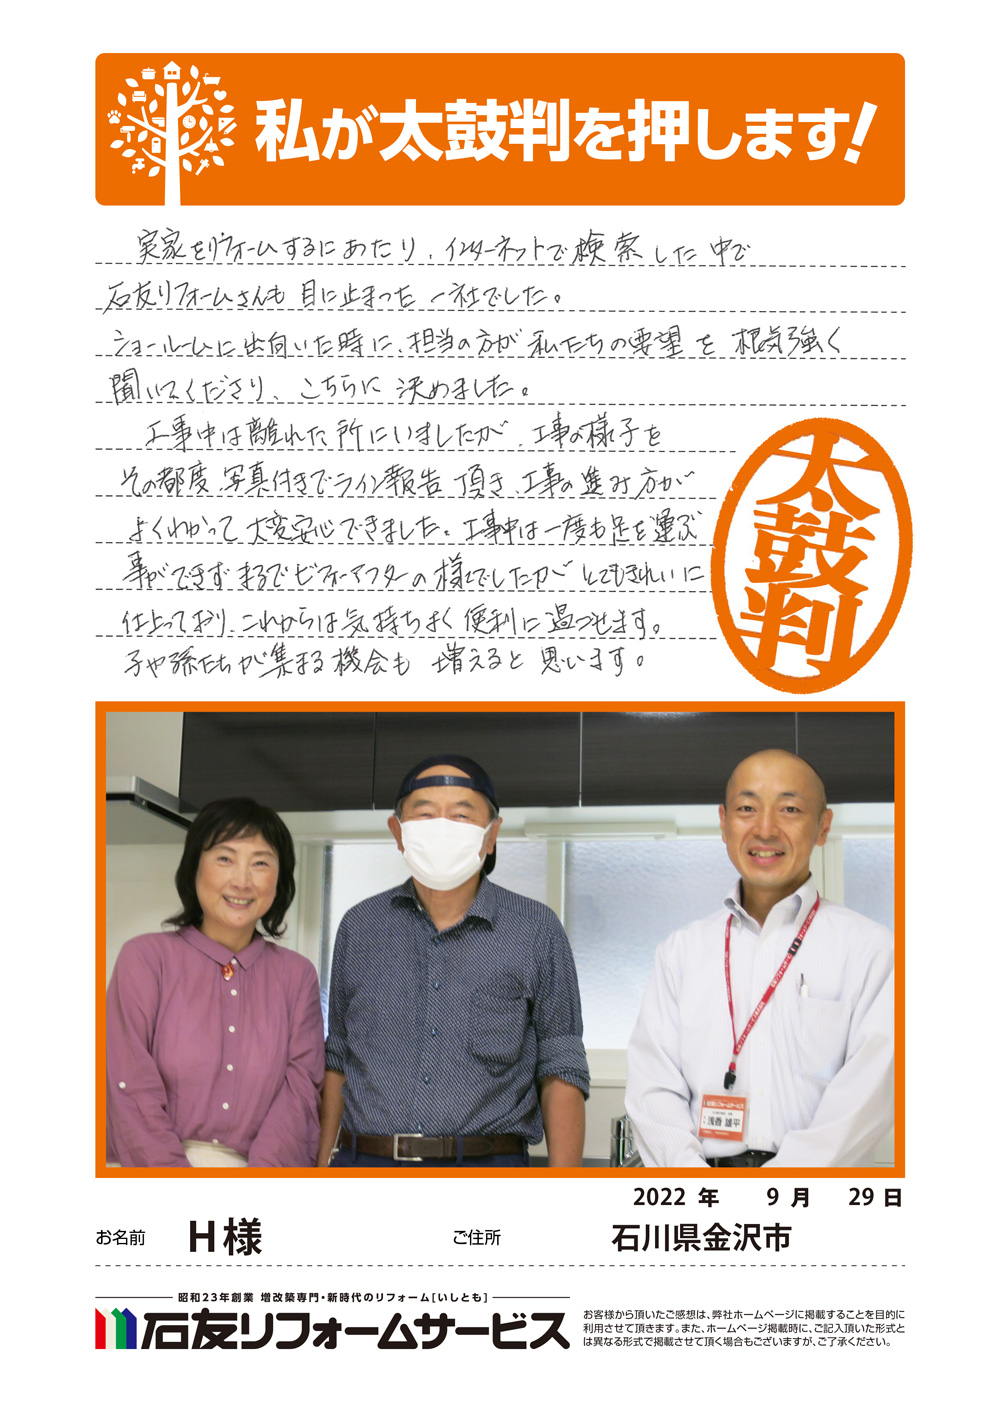 私が太鼓判を押します!
実家をリフォームするにあたり、インターネットで検索した中で
石友リフォームさんも目に止まった一社でした。
ショールームに出向いた時に、担当の方が私たちの要望を根気強く
聞いてくださり、こちらに決めました。
工事中は離れた所にいましたが、工事の様子を
その都度、写真付きでライン報告頂き、工事の進み方が
よくわかって大変安心できました。工事中は一度も足を運ぶ
事ができずまるでビフォーアフターの様でしたがとてもきれいに
仕上っており、これからは気持ちよく便利に過ごせます。
子や孫たちが集まる機会も増えると思います。
太鼓判
石友リフォームサービス
浅香 雄平
2022 年 9 月 29 日
お名前 H様 ご住所 石川県金沢市
昭和23年創業 増改築専門・新時代のリフォーム[いしとも]
石友リフォームサービス
お客様から頂いたご感想は、弊社ホームページに掲載することを目的に
利用させて頂きます。また、ホームページ掲載時に、ご記入頂いた形式と
は異なる形式で掲載させて頂く場合もございますが、ご了承ください。